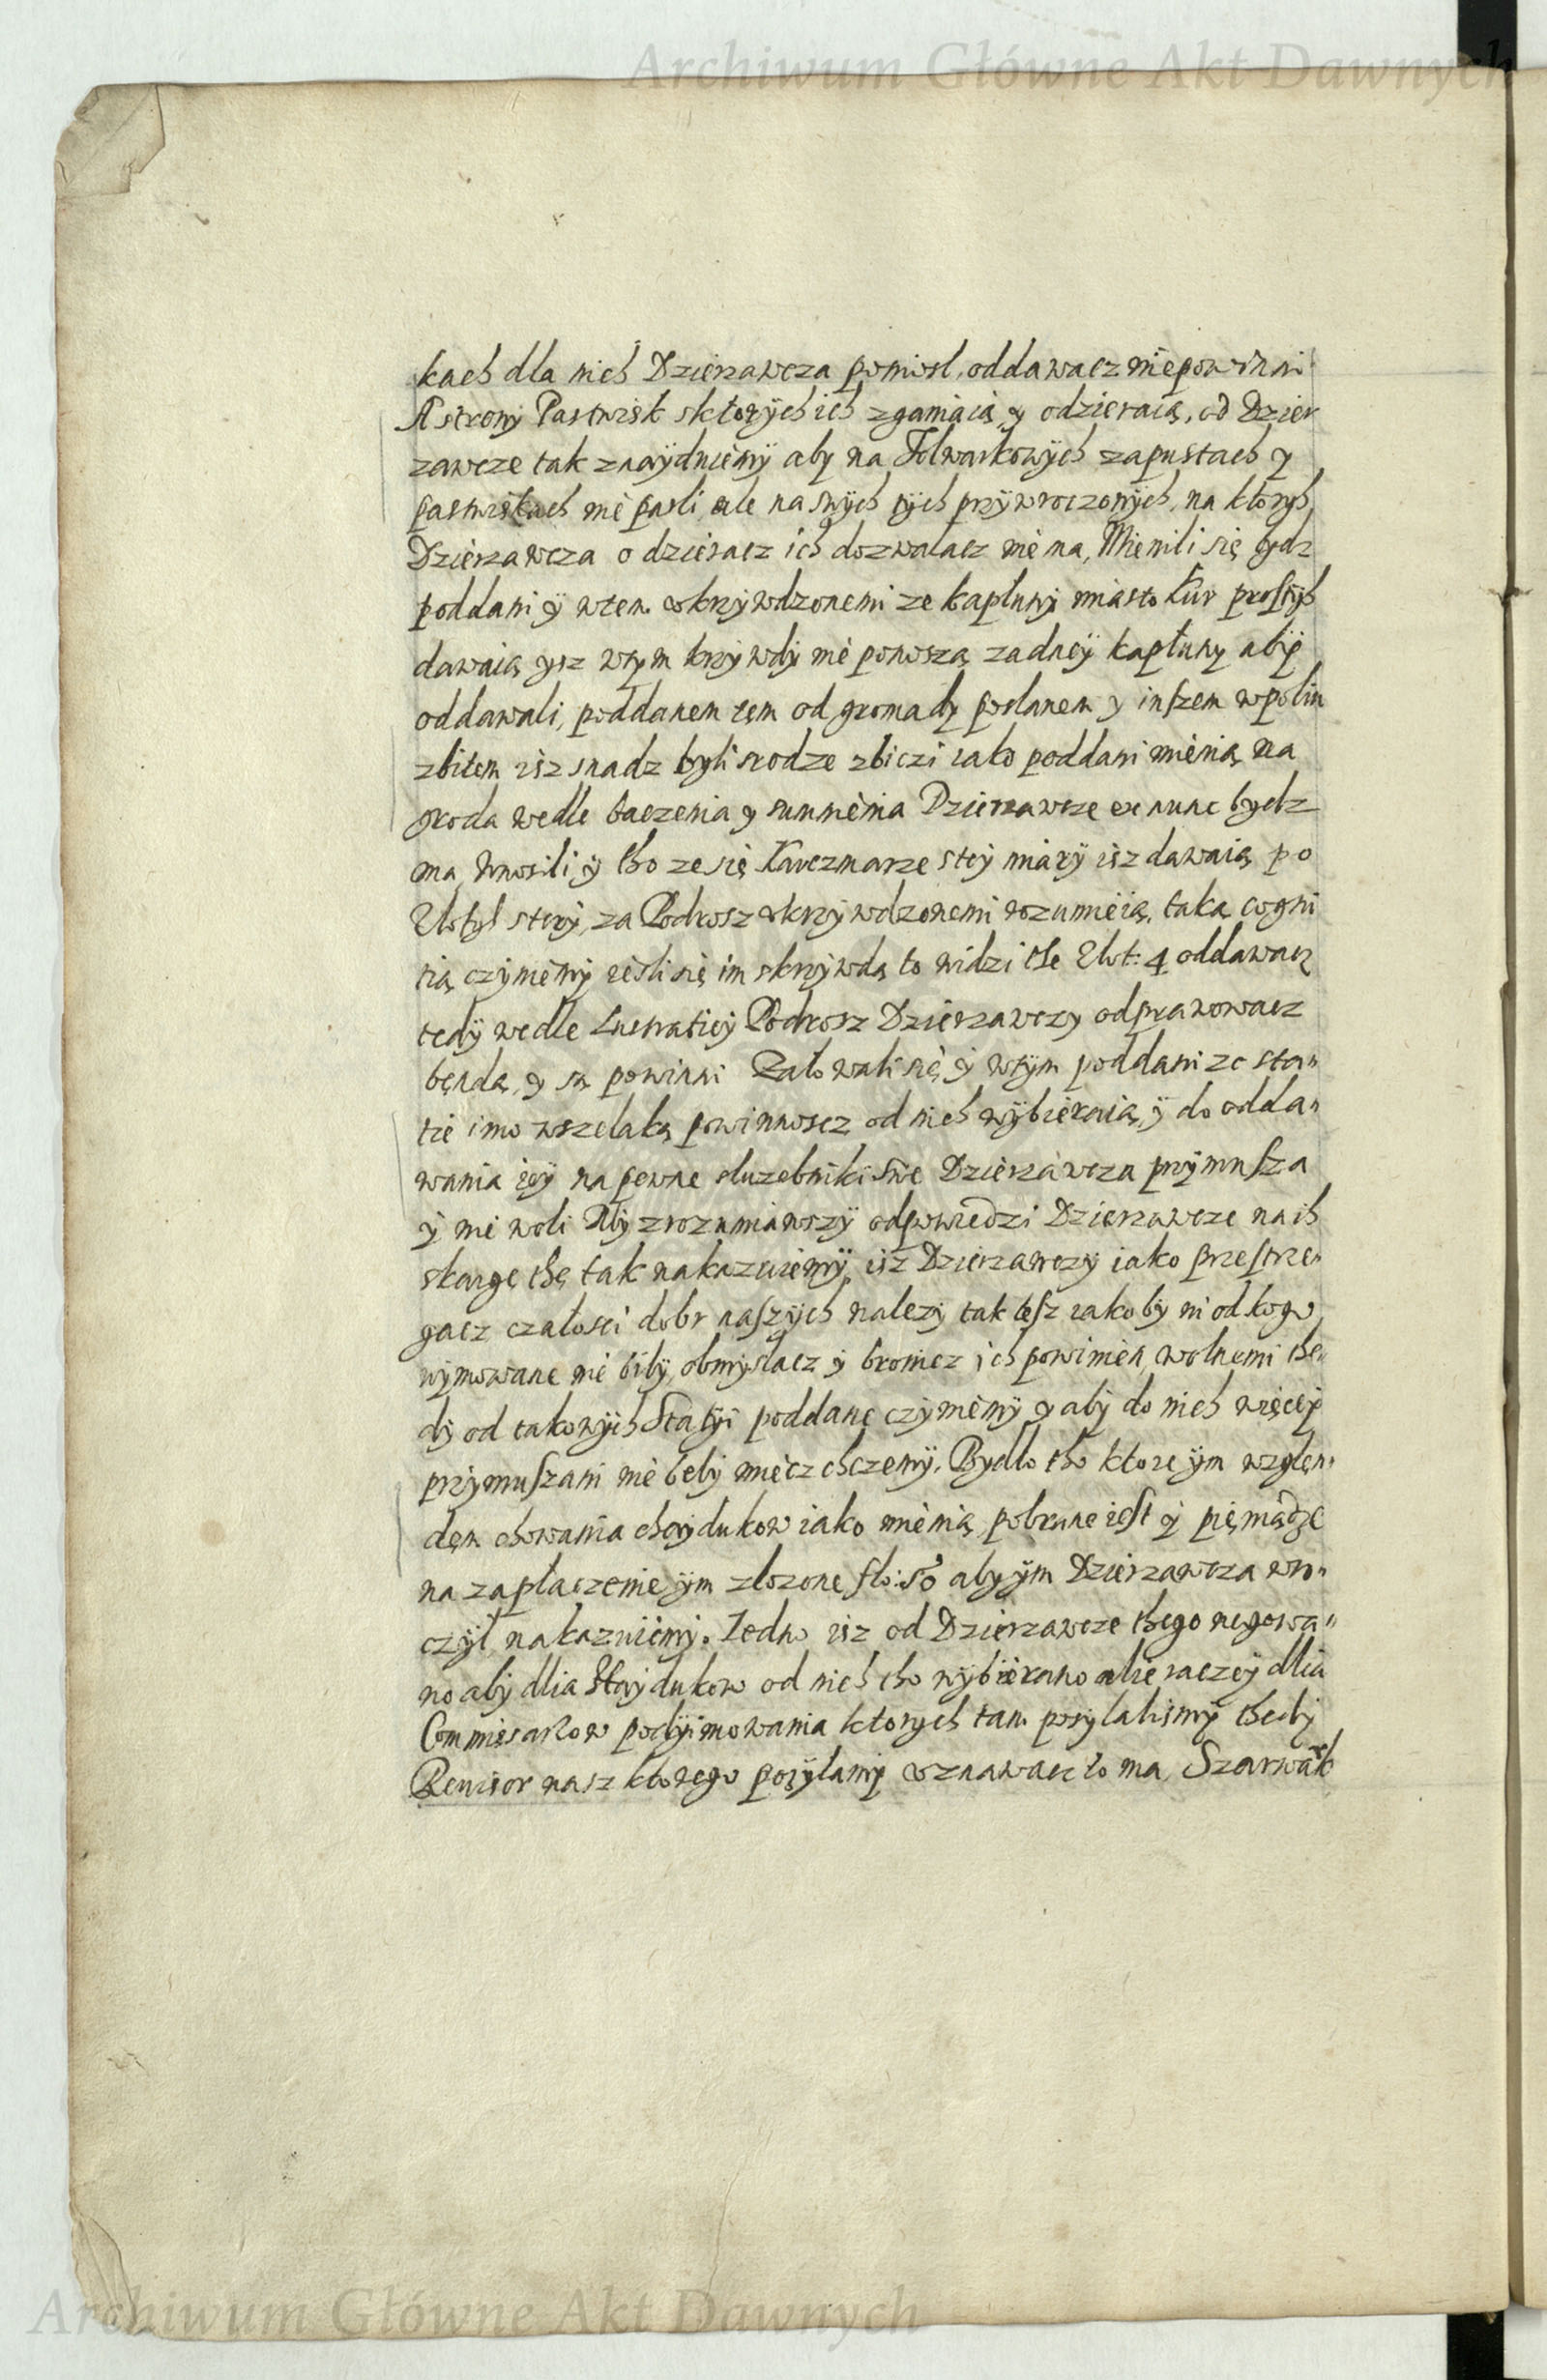 Archiwum Główne Akt Dawnych
kach dla nich Dzierzawcza pomiosl, oddawacz niepowinni
A strony Pastwisk sktorych ich zganiaią y odzieraią, od Dzier
zawcze tak znayduiemy aby na Folwarkowych zapustach y
pastwiskach nie pasli, ale na swych tych przywroczonych, na ktorych
Dzierzawcza odzieracz ich dozwalacz nie ma, Mienili się bydz
poddani y wtem ukrzywdzonemi ze kapłuny miasto kur prostych
dawaią ysz wtym krzywdy nie ponoszą zadney kapłuny abÿ
oddawali, poddanem tem od gromady poslanem y inszem wpoliu
zbitem isz snadz byli srodze zbiczi iako poddani mienią na
groda wedle baczenia y sumnienia Dzierzawcze ex nunc bydz
ma, Wnosili y tho ze się Karczmarze stey miary isz dawaią po
Zlotych sterÿ, za Podrosz ukrzywdzonemi rozumieią, taką cogni
tią czyniemy iesli się im skrzywdą to widzi the Zlot: 4 oddawacz
tedÿ wedle Lustratiey Podrosz Dzierzawczy odprawowacz
będą, y są powinni Załowali się y wtym poddani ze sta"
tie imo wszelaką powinnoscz od nich wÿbieraią, ÿ do odda"
wania iey na pewne sluzebniki swe Dzierzawcza przymusza
ÿ nie woli My zrozumiawszÿ odpowiedzi Dzierzawcze na ich
skargę thę tak nakazuiemÿ, isz Dzierzawczy iako przestrze"
gacz czałosci dobr naszych nalezy tak tesz iakoby ni od kogo
uymowane nie bilÿ, obmyslacz ÿ bronicz ich powinien, wolnemi the"
dÿ od takowych Statÿi poddane czyniemÿ y aby do nich więceÿ
przymuszani nie belÿ miecz chczemÿ, Bydlo tho ktore ÿm względ"
dem chowania chaydukow iako mienią pobrane iest ÿ pięniądze
na zapłaczenie ÿm złozone flo: 50 aby ÿm Dzierzawcza wro"
czył, nakazuiemÿ. Iedno isz od Dzierzawcze thego negowa"
no aby dlia Haydukow od nich tho wÿbierano alie raczey dlia
Commisarzow podÿimowania ktorych tam posylalismÿ thedy
Reuisor nasz ktorego posÿlamÿ uznawacz to ma, Szarwark
Archiwum Główne Akt Dawnych